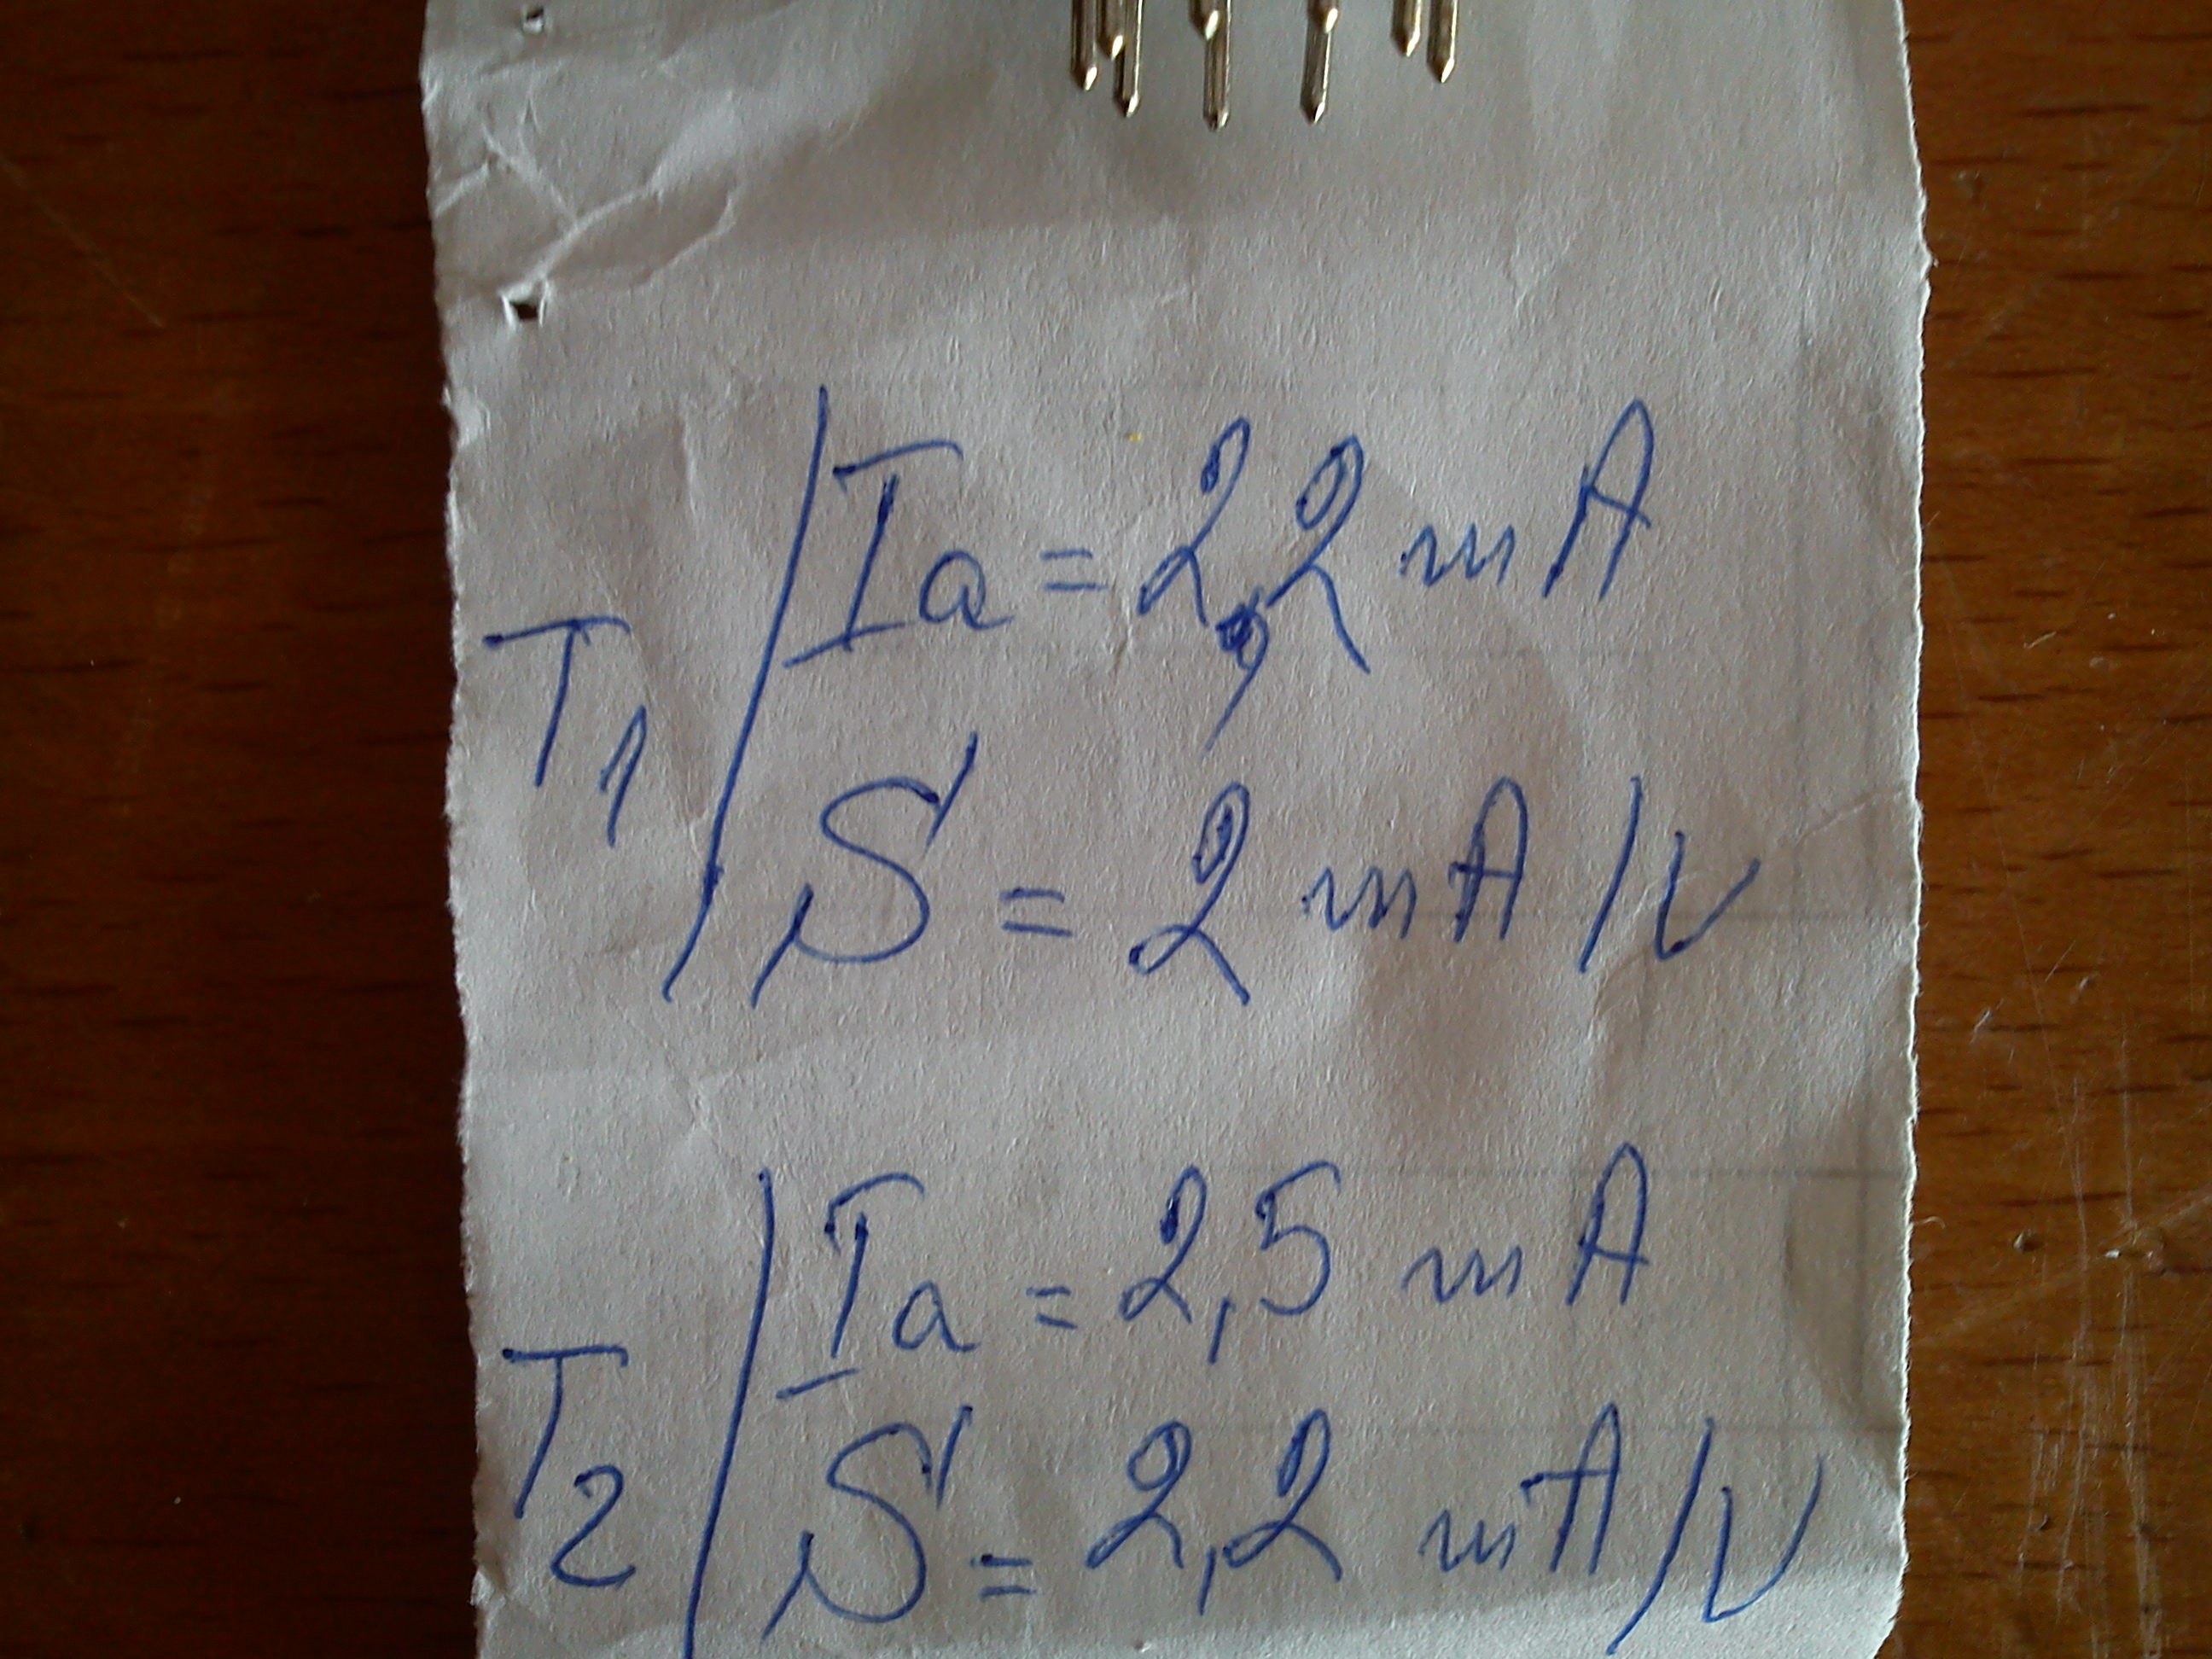 T1 Ia = 2,2 mA
S = 2 mA/V
T2 Ia = 2,5 mA
S = 2,2 mA/V